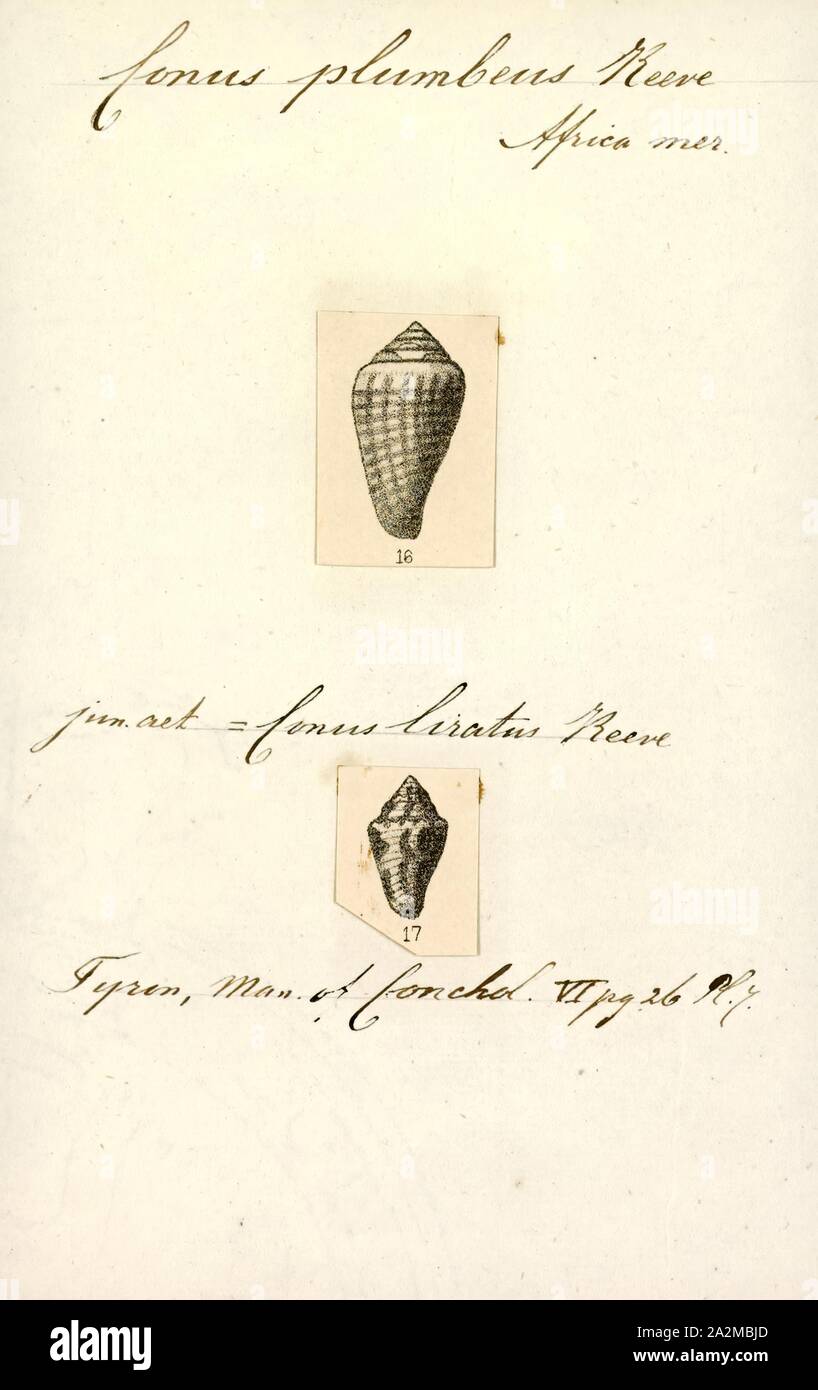 Conus plumbeus Reeve
Africa mer.
16
jun. aet = Conus liratus Reeve
17
Tyron, Man. of Conchol. VI pg 26 Pl. 7.
alamy
Image ID: 2A2MBJD
www.alamy.com